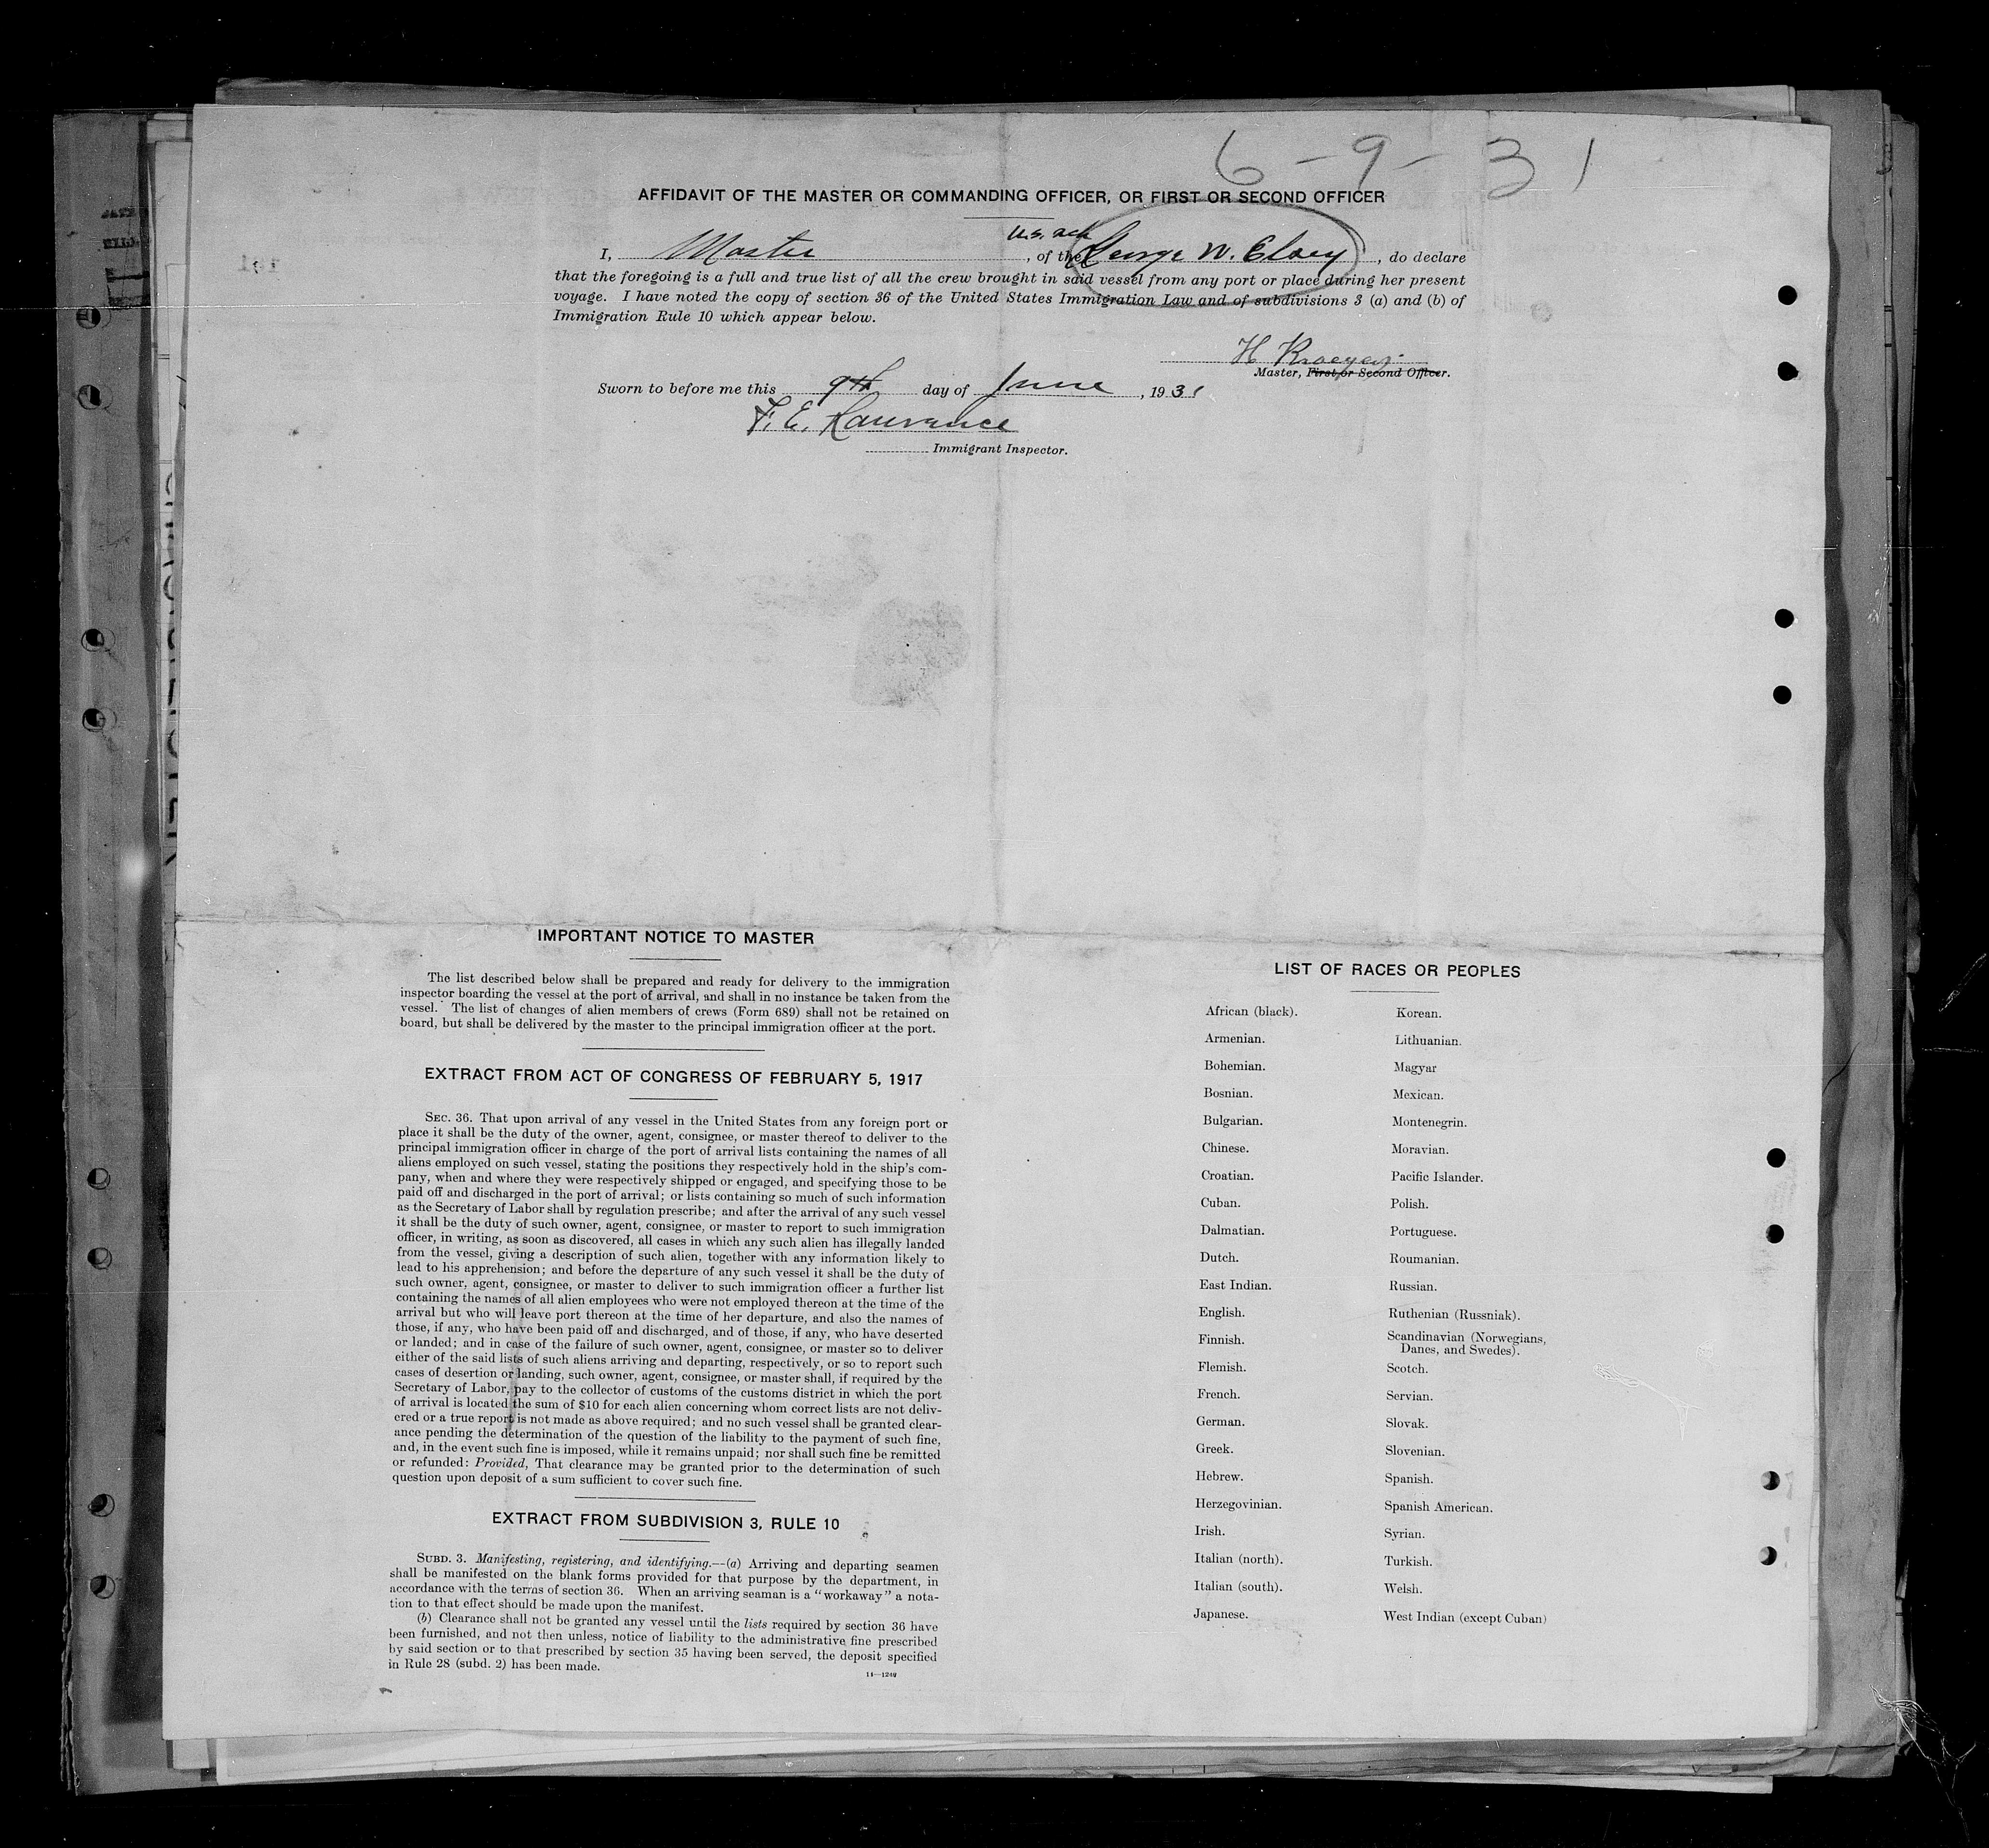 6-9-31
AFFIDAVIT OF THE MASTER OR COMMANDING OFFICER, OR FIRST OR SECOND OFFICER
I, Master, of the George W. Elsey, do declare
that the foregoing is a full and true list of all the crew brought in said vessel from any port or place during her present
voyage. I have noted the copy of section 36 of the United States Immigration Law and of subdivisions 3 (a) and (b) of
Immigration Rule 10 which appear below.
H Kroeger
Master, First or Second Officer.
Sworn to before me this 9th day of June, 1931
F. E. Lawrance
Immigrant Inspector.
IMPORTANT NOTICE TO MASTER
The list described below shall be prepared and ready for delivery to the immigration
inspector boarding the vessel at the port of arrival, and shall in no instance be taken from the
vessel. The list of changes of alien members of crews (Form 689) shall not be retained on
board, but shall be delivered by the master to the principal immigration officer at the port.
EXTRACT FROM ACT OF CONGRESS OF FEBRUARY 5, 1917
SEC. 36. That upon arrival of any vessel in the United States from any foreign port or
place it shall be the duty of the owner, agent, consignee, or master thereof to deliver to the
principal immigration officer in charge of the port of arrival lists containing the names of all
aliens employed on such vessel, stating the positions they respectively hold in the ship's com-
pany, when and where they were respectively shipped or engaged, and specifying those to be
paid off and discharged in the port of arrival; or lists containing so much of such information
as the Secretary of Labor shall by regulation prescribe; and after the arrival of any such vessel
it shall be the duty of such owner, agent, consignee, or master to report to such immigration
officer, in writing, as soon as discovered, all cases in which any such alien has illegally landed
from the vessel, giving a description of such alien, together with any information likely to
lead to his apprehension; and before the departure of any such vessel it shall be the duty of
such owner, agent, consignee, or master to deliver to such immigration officer a further list
containing the names of all alien employees who were not employed thereon at the time of the
arrival but who will leave port thereon at the time of her departure, and also the names of
those, if any, who have been paid off and discharged, and of those, if any, who have deserted
or landed; and in case of the failure of such owner, agent, consignee, or master so to deliver
either of the said lists of such aliens arriving and departing, respectively, or so to report such
cases of desertion or landing, such owner, agent, consignee, or master shall, if required by the
Secretary of Labor, pay to the collector of customs of the customs district in which the port
of arrival is located the sum of $10 for each alien concerning whom correct lists are not deliv-
ered or a true report is not made as above required; and no such vessel shall be granted clear-
ance pending the determination of the question of the liability to the payment of such fine,
and, in the event such fine is imposed, while it remains unpaid; nor shall such fine be remitted
or refunded: Provided, That clearance may be granted prior to the determination of such
question upon deposit of a sum sufficient to cover such fine.
EXTRACT FROM SUBDIVISION 3, RULE 10
SUBD. 3. Manifesting, registering, and identifying.—(a) Arriving and departing seamen
shall be manifested on the blank forms provided for that purpose by the department, in
accordance with the terms of section 36. When an arriving seaman is a "workaway" a nota-
tion to that effect should be made upon the manifest.
(b) Clearance shall not be granted any vessel until the lists required by section 36 have
been furnished, and not then unless, notice of liability to the administrative fine prescribed
by said section or to that prescribed by section 35 having been served, the deposit specified
in Rule 28 (subd. 2) has been made.
14—1240
LIST OF RACES OR PEOPLES
African (black).
Armenian.
Bohemian.
Bosnian.
Bulgarian.
Chinese.
Croatian.
Cuban.
Dalmatian.
Dutch.
East Indian.
English.
Finnish.
Flemish.
French.
German.
Greek.
Hebrew.
Herzegovinian.
Irish.
Italian (north).
Italian (south).
Japanese.
Korean.
Lithuanian.
Magyar
Mexican.
Montenegrin.
Moravian.
Pacific Islander.
Polish.
Portuguese.
Roumanian.
Russian.
Ruthenian (Russniak).
Scandinavian (Norwegians,
Danes, and Swedes).
Scotch.
Servian.
Slovak.
Slovenian.
Spanish.
Spanish American.
Syrian.
Turkish.
Welsh.
West Indian (except Cuban)